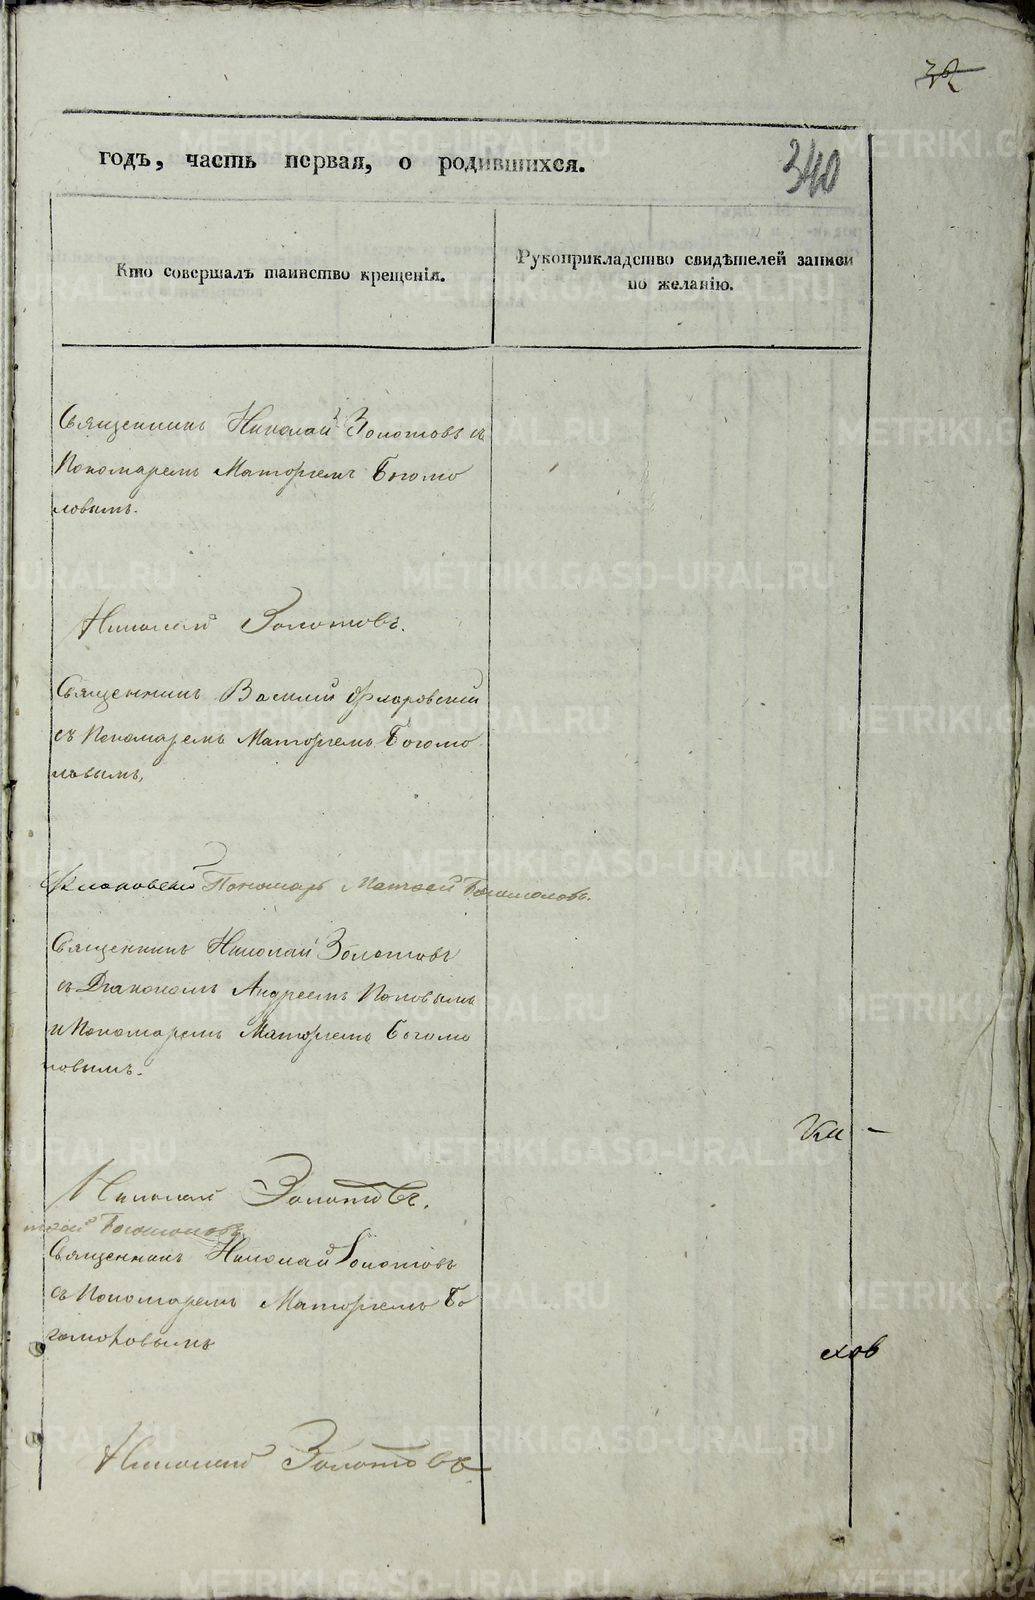 32
годъ, часть первая, о родившихся.
340
Кто совершалъ таинство крещенія.
Рукоприкладство свидѣтелей записи
по желанію.
Священникъ Николай Золотовъ съ
Пономаремъ Матѳіемъ Богомо
ловымъ.
Николай Золотовъ.
Священникъ Василій Флоровскій
съ Пономаремъ Матѳіемъ Богомо
ловымъ,
Флоровскій Пономарь Матѳей Богомоловъ.
Священникъ Николай Золотовъ
съ Діакономъ Андреемъ Поповымъ
и Пономаремъ Матѳіемъ Богомо
ловымъ.
Николай Золотовъ.
тѳей Богомоловъ
Священникъ Николай Золотовъ
съ Пономаремъ Матѳіемъ Бо
гомоловымъ
ховъ
Николай Золотовъ
METRIKI.GASO-URAL.RU